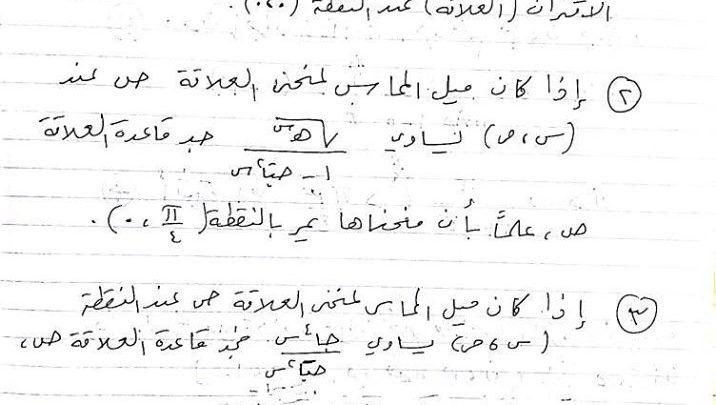 الاقتران (العلاقة) عند النقطة (٠،٠).
٢) إذا كان ميل المماس لمنحنى العلاقة ص عند
(س،ص) يساوي √هـ^ص / ١ - جتا²س جد قاعدة العلاقة
ص، علماً بأن منحناها يمر بالنقطة (π/٤ ، ٠).
٣) إذا كان ميل المماس لمنحنى العلاقة ص عند النقطة
(س،ص) يساوي جا⁴س / جتا⁶س فجد قاعدة العلاقة ص،